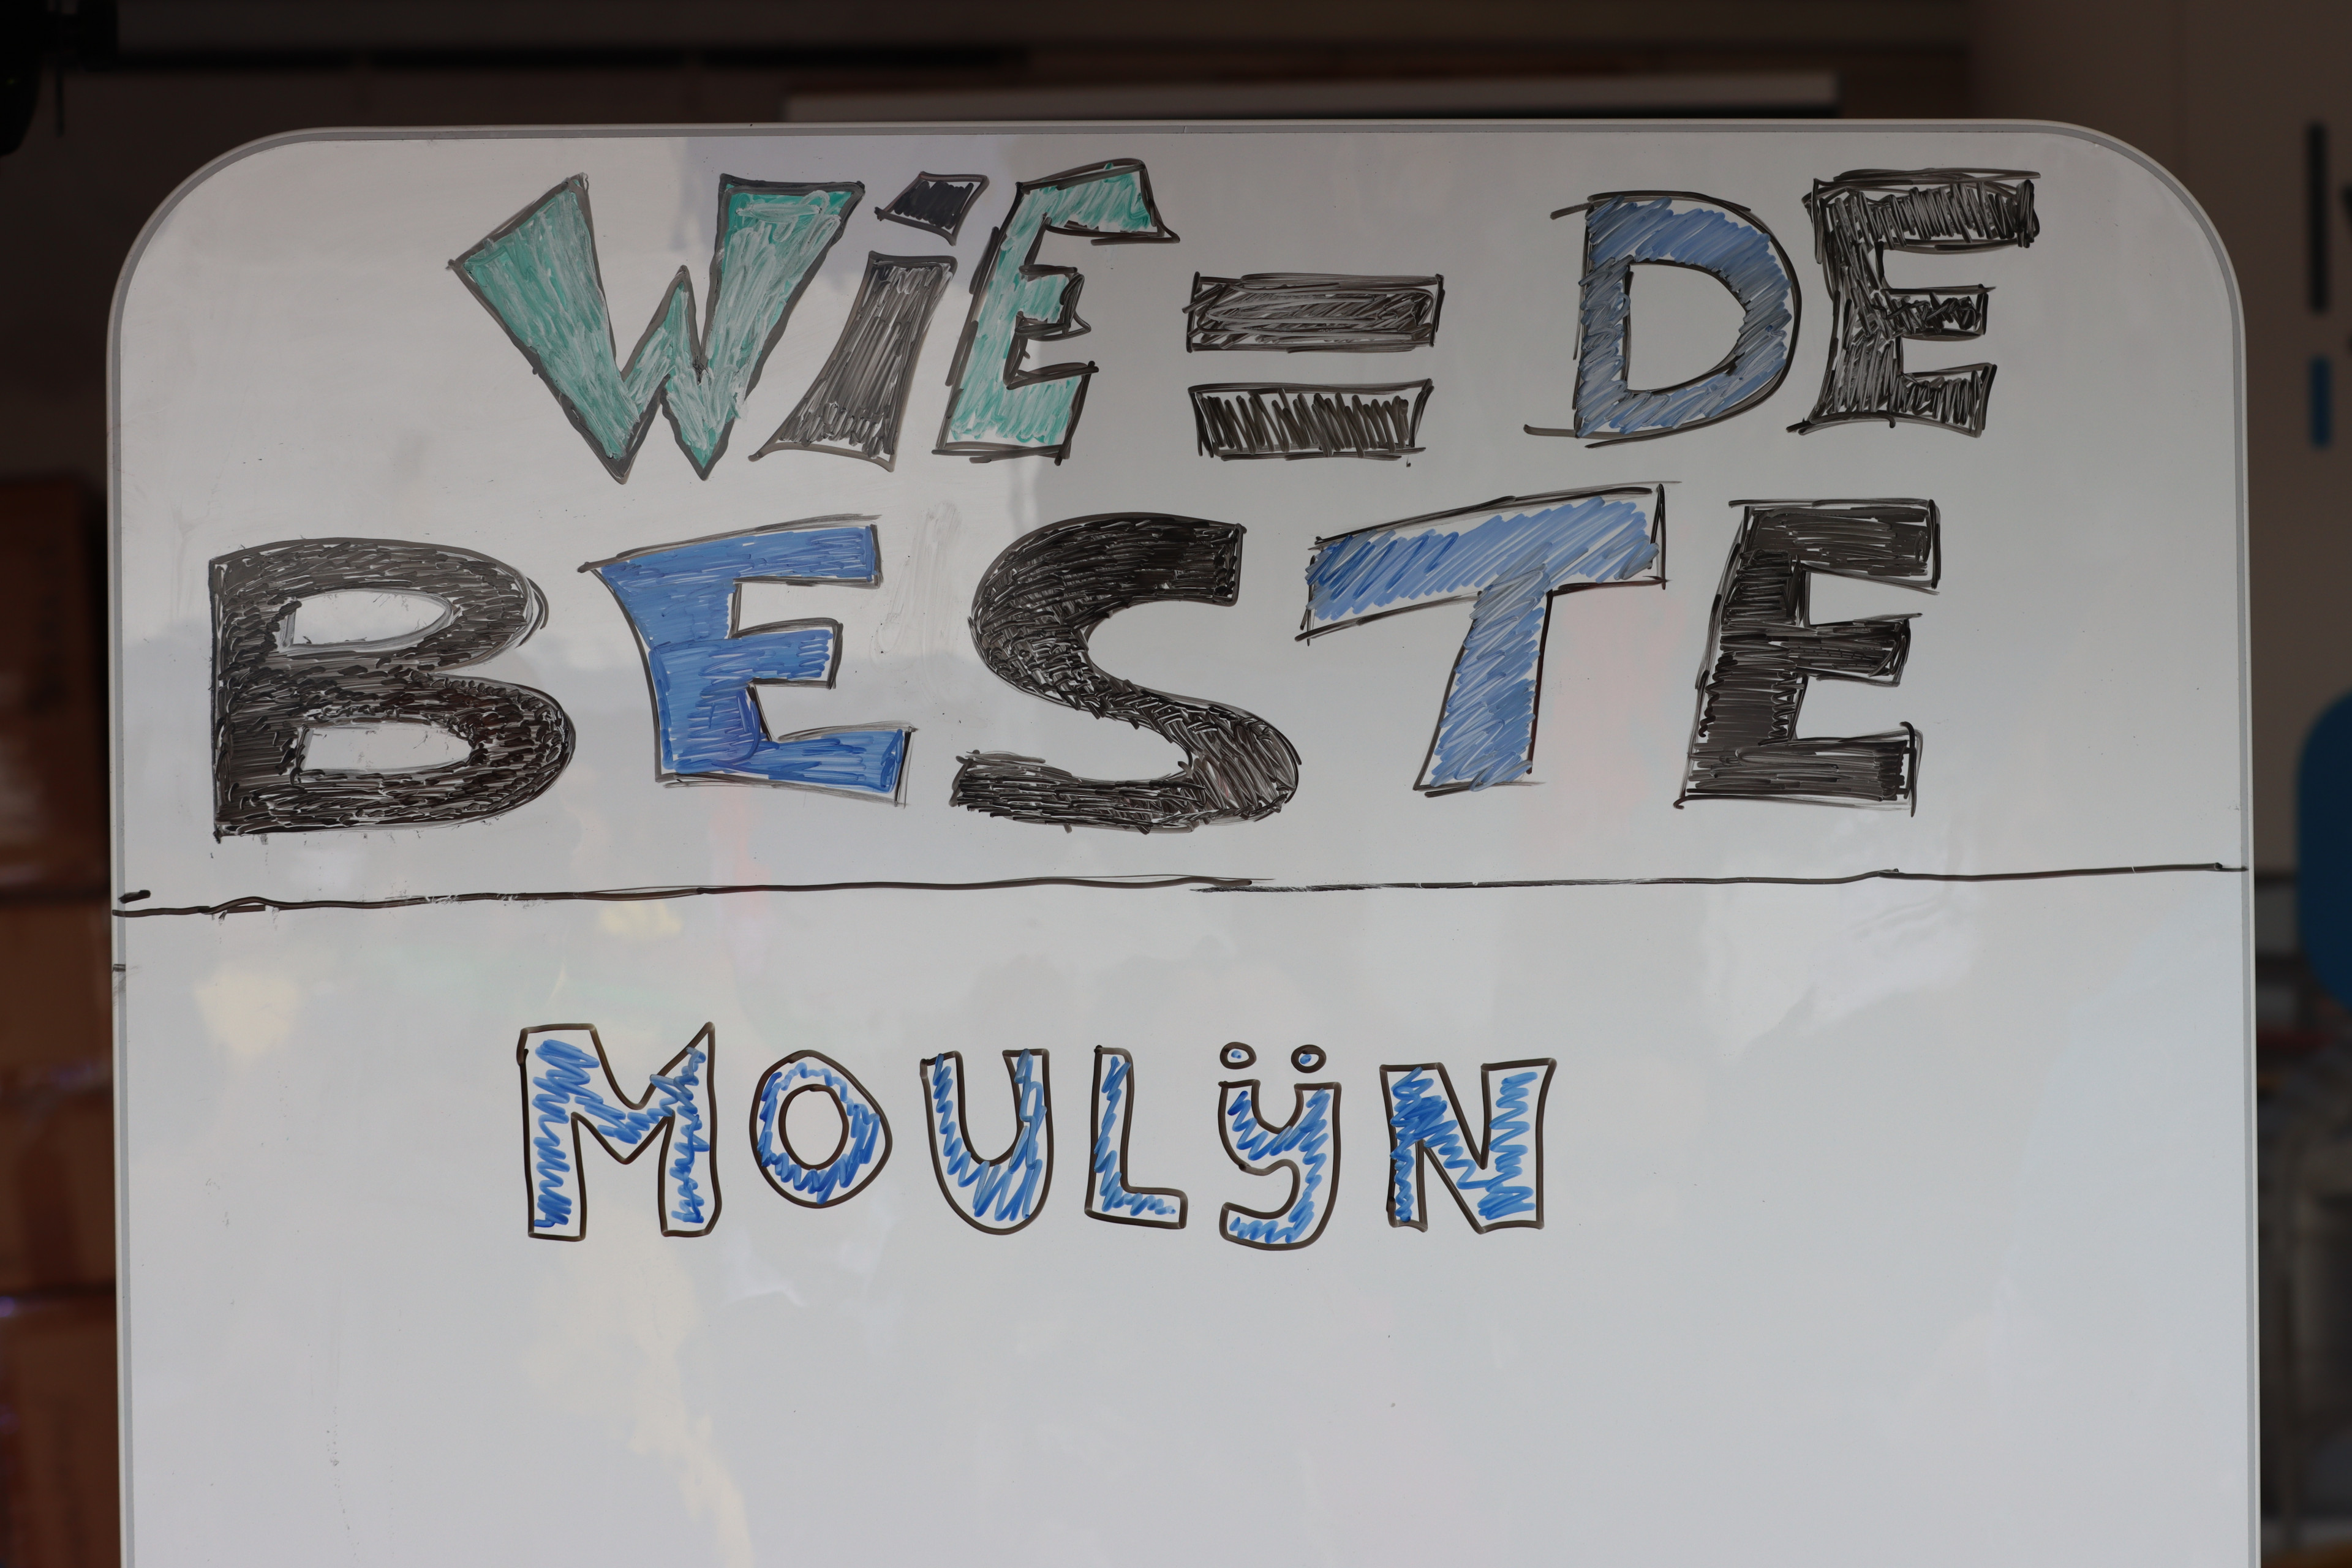 WiE = DE
BESTE
MOULÿN